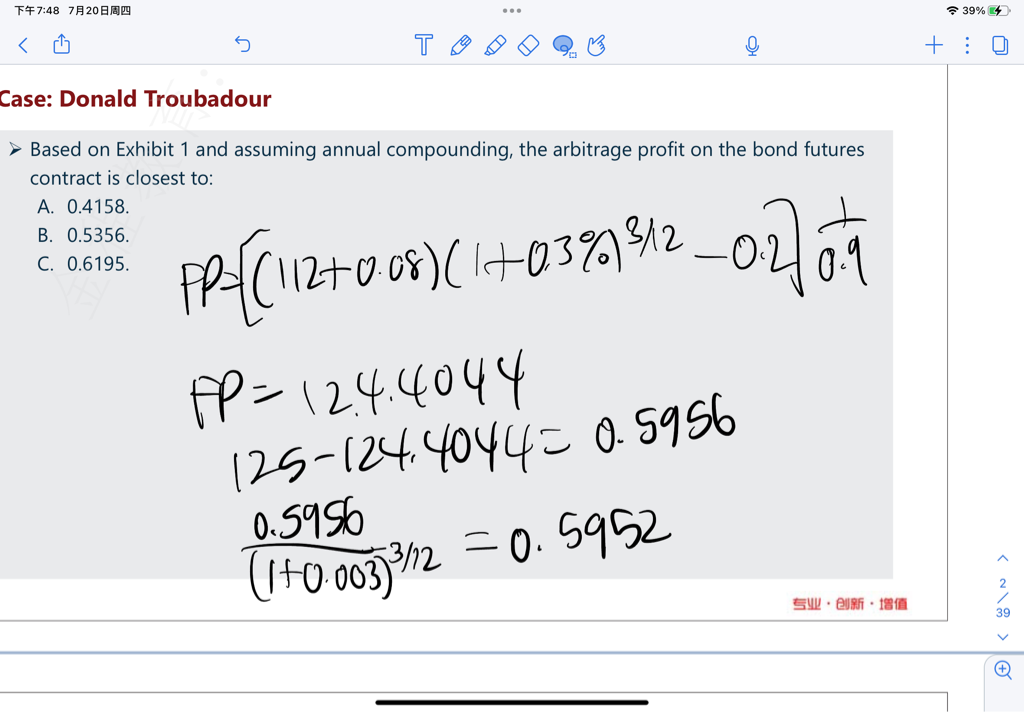 下午7:48 7月20日周四
39%
Case: Donald Troubadour
➤ Based on Exhibit 1 and assuming annual compounding, the arbitrage profit on the bond futures
contract is closest to:
A. 0.4158.
B. 0.5356.
C. 0.6195.
FP=[(112+0.08)(1+0.3%)^3/12 - 0.2] 1/0.9
FP = 124.4044
125-124.4044= 0.5956
0.5956/(1+0.003)^3/12 = 0.5952
专业·创新·增值
2
/
39